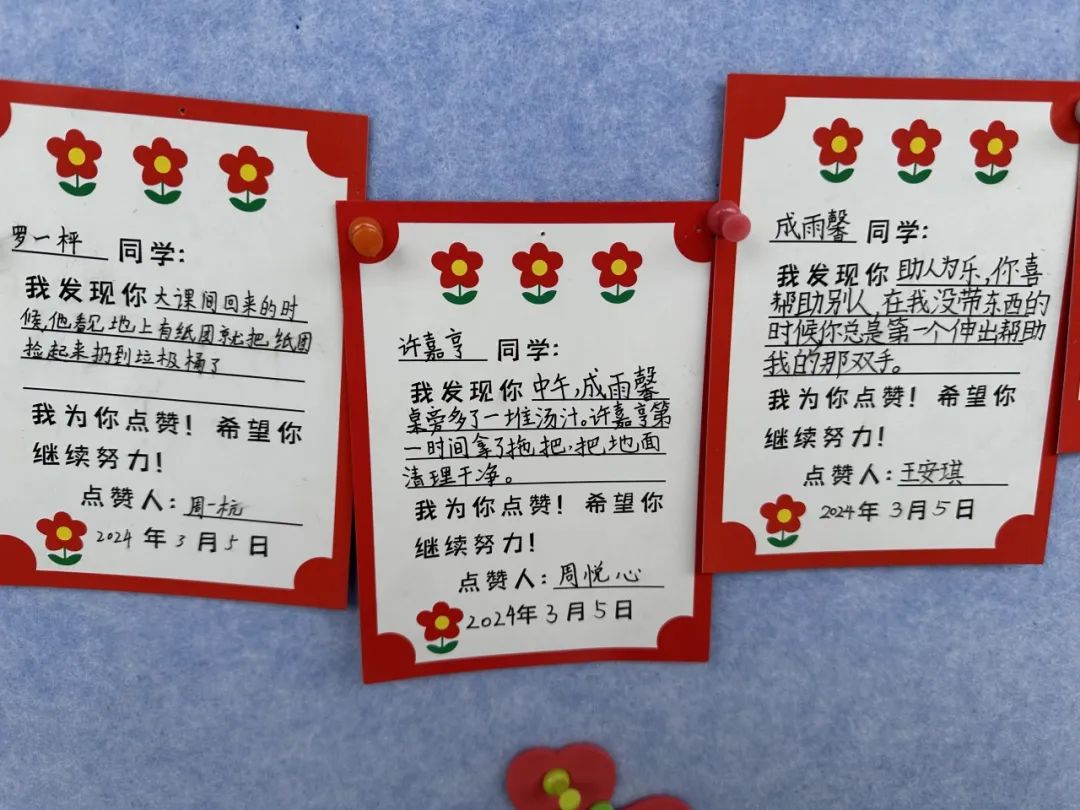 罗一枰 同学:
我发现你 大课间回来的时
候,他看见地上有纸团就把纸团
捡起来扔到垃极桶了
我为你点赞! 希望你
继续努力!
点赞人: 周一杭
2024 年 3 月 5 日
许嘉亨 同学:
我发现你 中午,成雨馨
桌旁多了一堆汤汁。许嘉亨第
一时间拿了拖把,把地面
清理干净。
我为你点赞! 希望你
继续努力!
点赞人: 周悦心
2024年 3 月 5 日
成雨馨 同学:
我发现你 助人为乐,你喜
帮助别人,在我没带东西的
时候,你总是第一个伸出帮助
我的那双手。
我为你点赞! 希望你
继续努力!
点赞人: 王安琪
2024年 3月 5 日